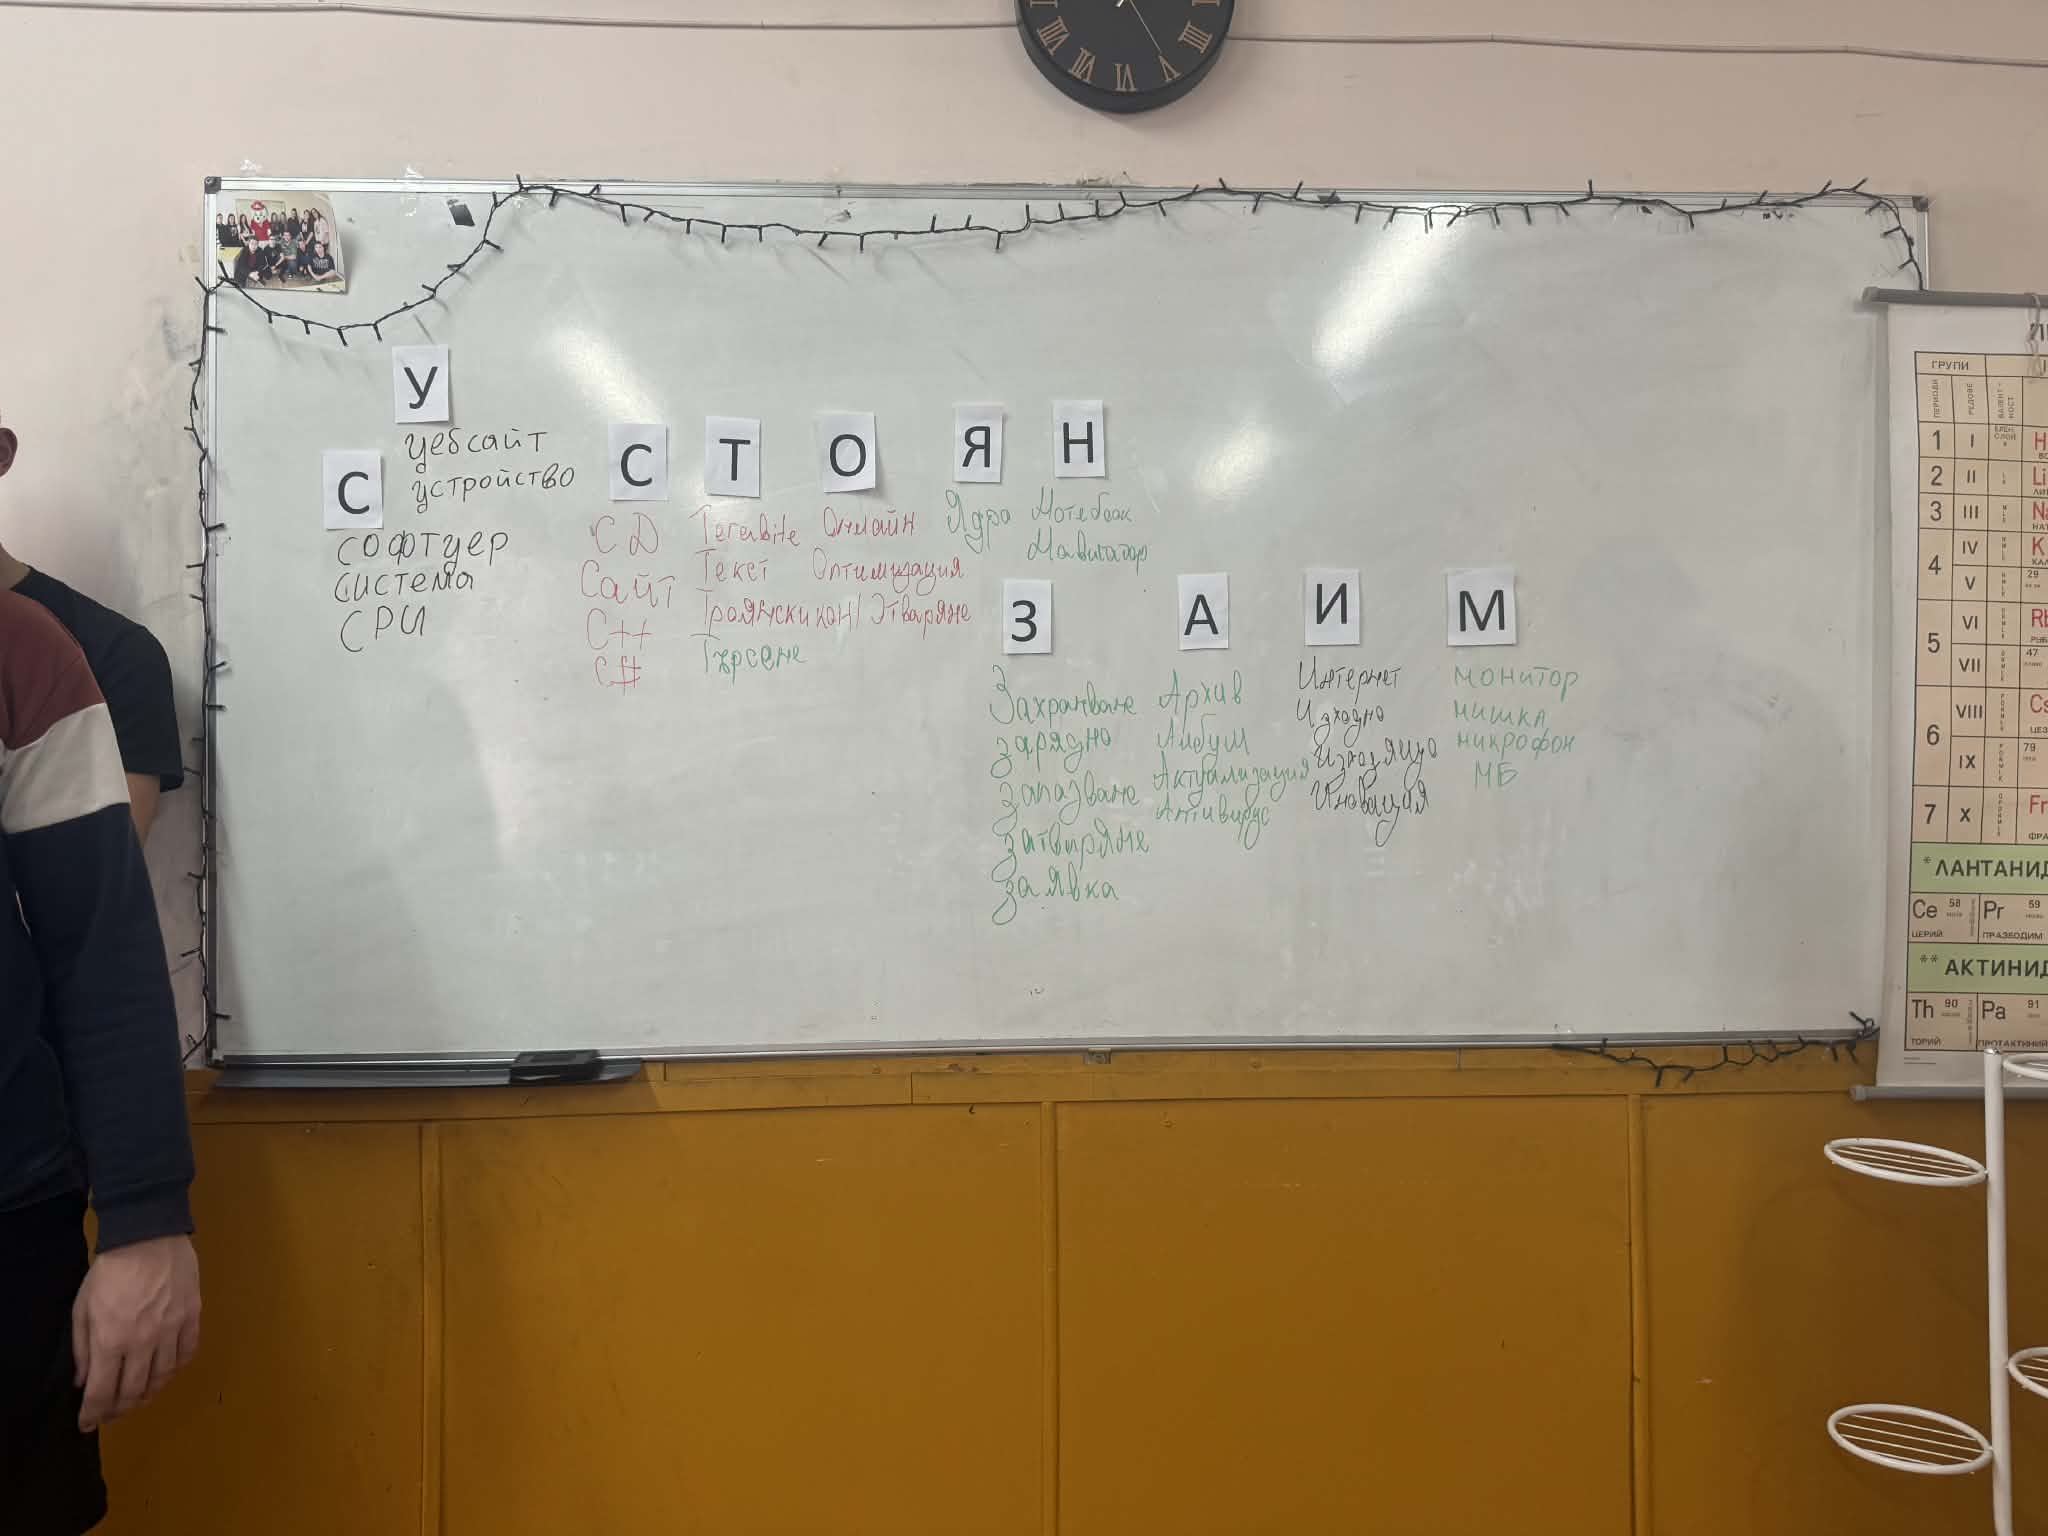 VIII VII VI V IIII
У
уебсайт
устройство
С
софтуер
система
CPU
С Т О Я Н
CD Terabite Онлайн Ядро Нотебоок
Сайт Текст Оптимизация Навигатор
C++ Троянски кон/ Отваряне
C# Търсене
З А И М
Захранване Архив Интернет монитор
зарядно Албум Изходно мишка
запазване Актуализация Изходящо микрофон
затваряне Антивирус Иновация МБ
заявка
ГРУПИ
ПЕРИОДИ РЕДОВЕ ВАЛЕНТ- НОСТ
1 I H
2 II Li
3 III Na
4 IV K
V 29
5 VI Rb
VII 47
6 VIII Cs
IX 79
7 X Fr
* ЛАНТАНИД
Ce 58 Pr 59
ЦЕРИЙ ПРАЗЕОДИМ
** АКТИНИД
Th 90 Pa 91
ТОРИЙ ПРОТАКТИНИЙ